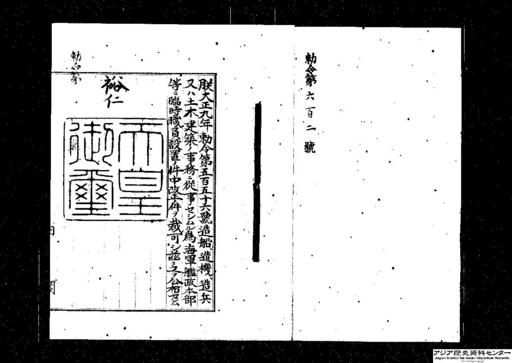 勅令第六百二號
朕大正九年勅令第五百五十六號造船造機造兵
又ハ土木建築ノ事務ニ從事セシムル爲海軍艦政本部
等ニ臨時職員設置ノ件中改正ノ件ヲ裁可シ茲ニ之ヲ公布セシム
裕仁
天皇
御璽
勅令第
内閣
アジア歴史資料センター
Japan Center for Asian Historical Records